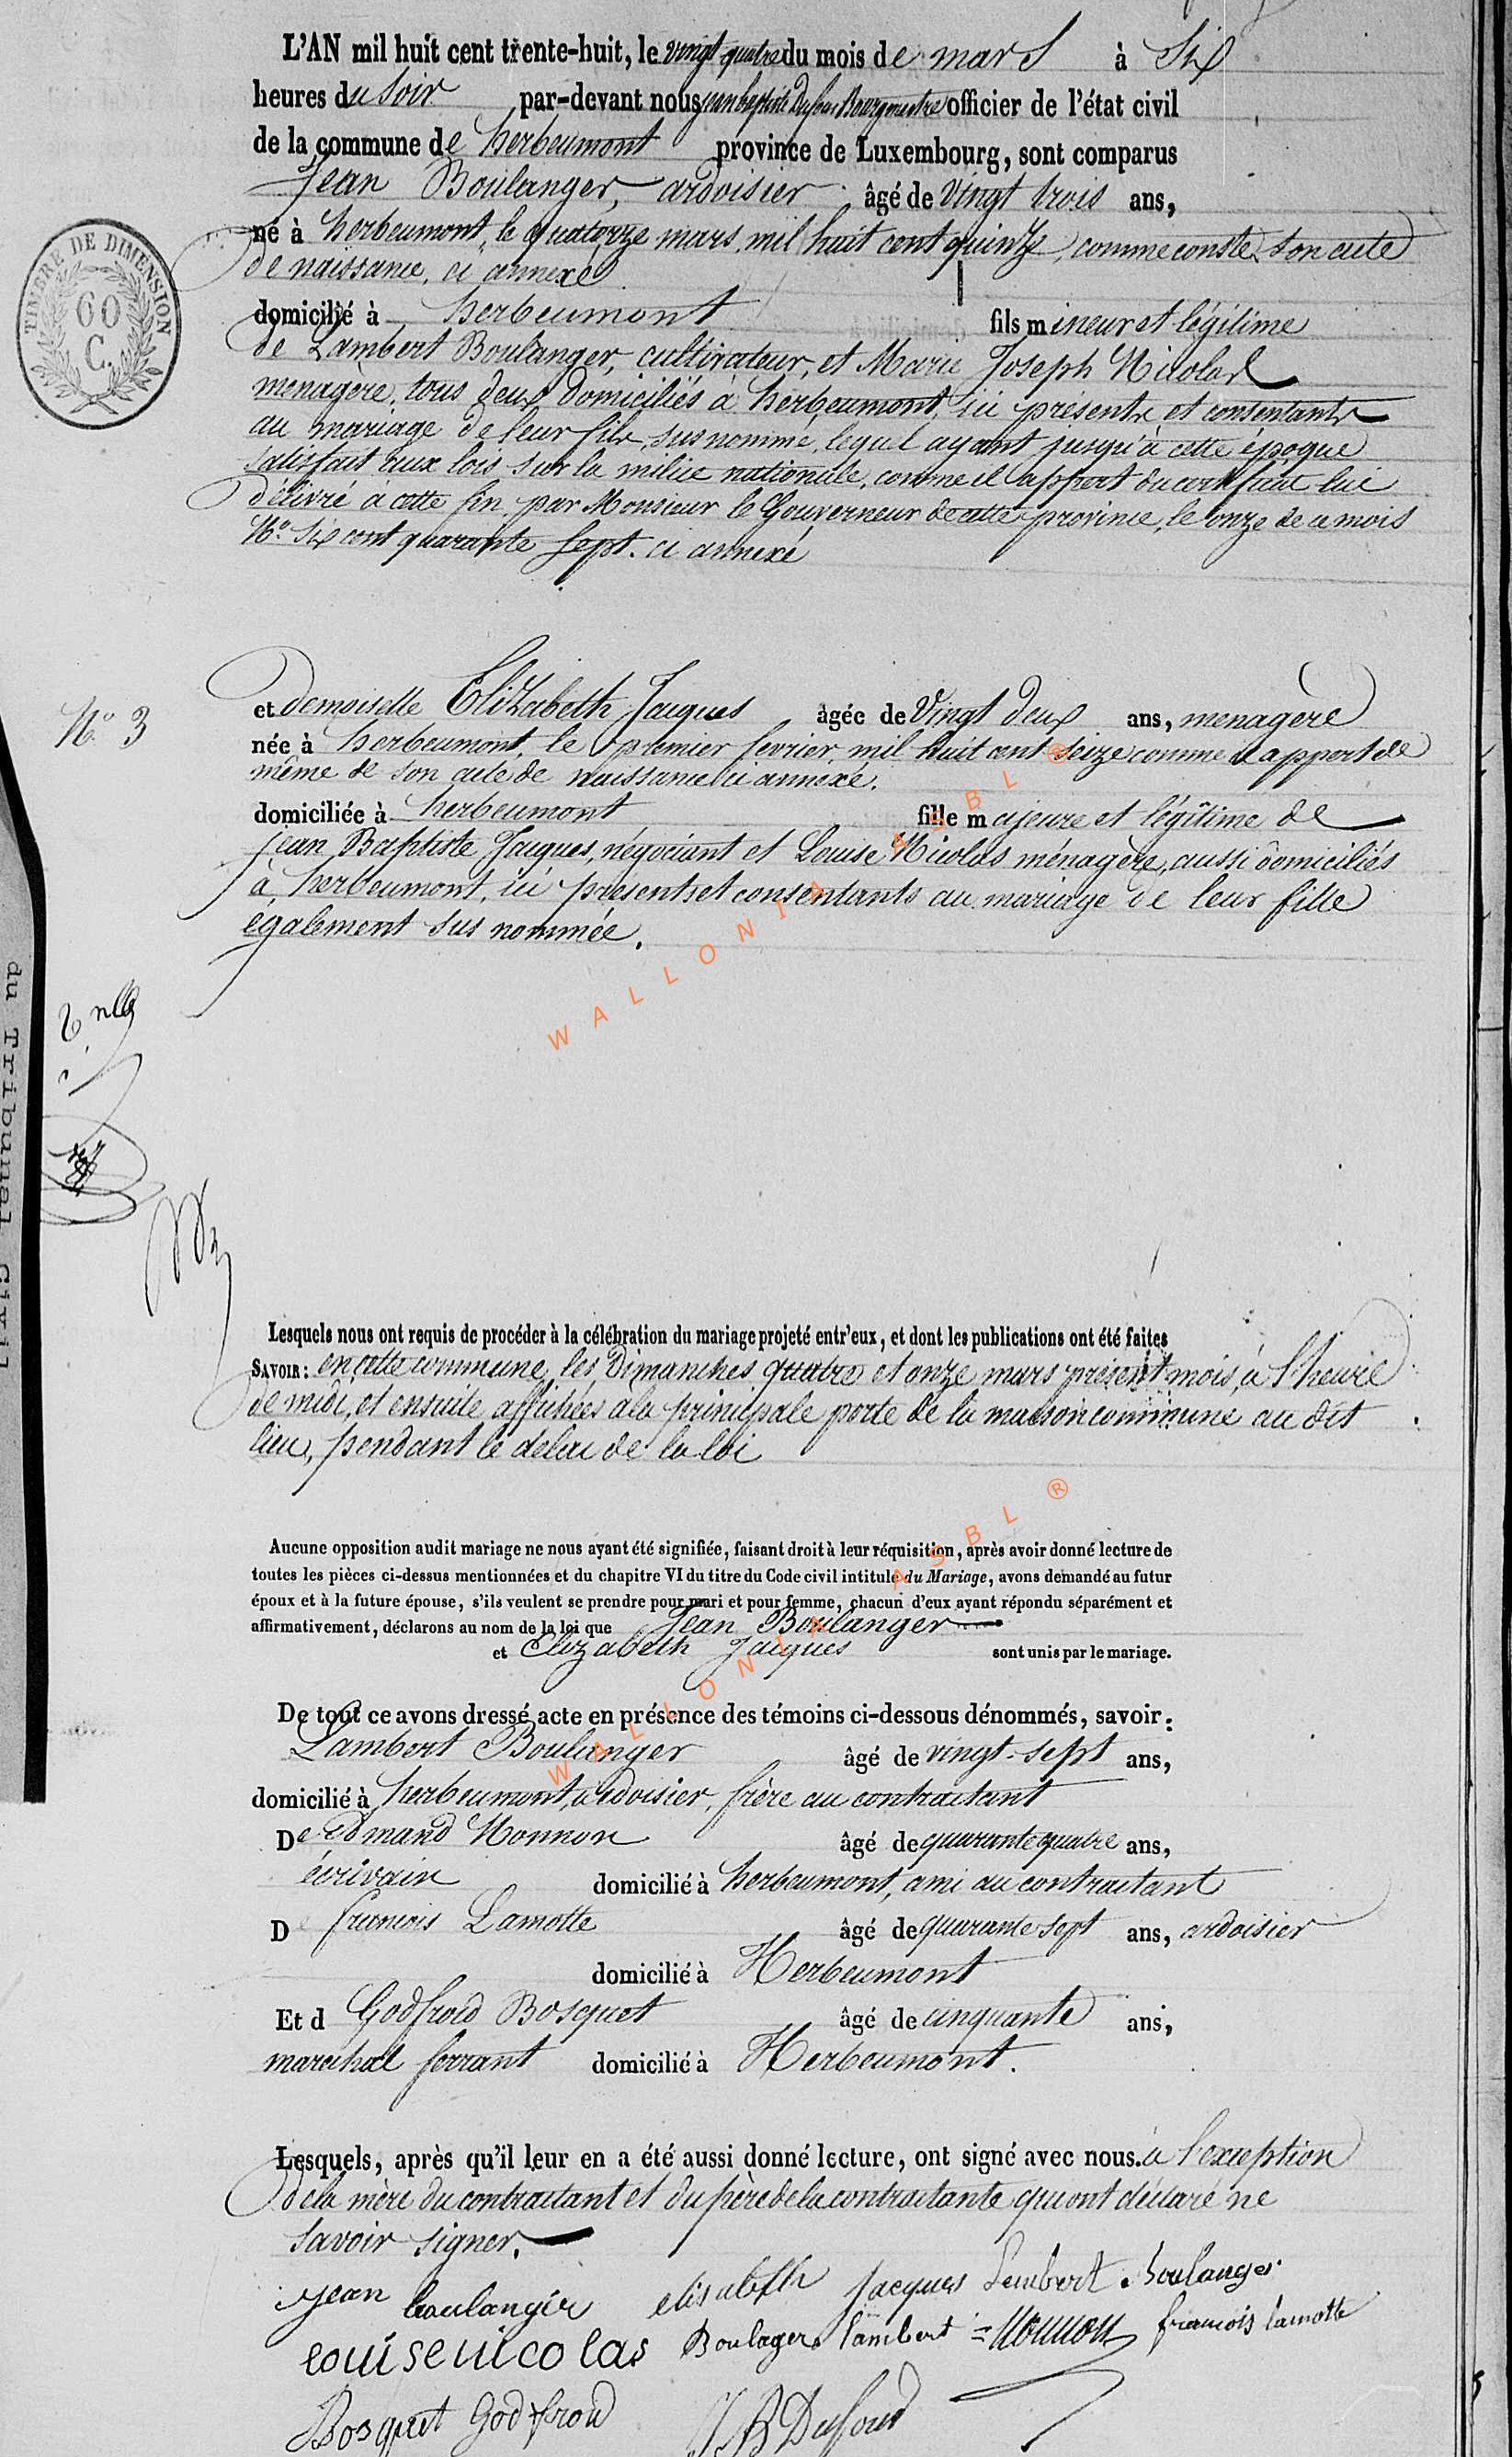 L'AN mil huit cent trente-huit, le vingt quatre du mois de mars à six
heures du soir par-devant nous jean baptiste Dufour Bourgmestre officier de l'état civil
de la commune de herbeumont province de Luxembourg, sont comparus
Jean Boulanger, ardoisier âgé de vingt trois ans,
né à herbeumont, le quatorze mars, mil huit cent quinze, comme conste son acte
de naissance, ci annexé
domicilié à herbeumont fils mineur et légitime
de Lambert Boulanger, cultivateur, et Marie Joseph Nicolas
menagère, tous deux domiciliés à herbeumont, ici présents et consentants
au mariage de leur fils, susnommé, lequel ayant jusqu'à cette époque
satisfait aux lois sur la milice nationale, comme il appert du certificat lui
délivré à cette fin, par Monsieur le Gouverneur de cette province, le onze de ce mois
N.° six cent quarante sept. ci annexé
TIMBRE DE DIMENSION
60
C.
N.° 3
et demoiselle Elizabeth Jaques âgée de vingt deux ans, menagère
née à herbeumont, le premier fevrier, mil huit cent seize comme il appert de
même de son acte de naissance ci annexé.
domiciliée à herbeumont fille majeure et légitime de
jean Baptiste Jaques, négociant et Louise Nicolas ménagère, aussi domiciliés
à herbeumont, ici présents et consentants au mariage de leur fille
également sus nommée.
WALLONIA ASBL ®
du Tribunal Civil
Lesquels nous ont requis de procéder à la célébration du mariage projeté entr'eux, et dont les publications ont été faites
SAVOIR: en cette commune, les Dimanches quatre et onze mars présent mois, à l'heure
de midi, et ensuite affichées à la principale porte de la maison commune au dit
lieu, pendant le delai de la loi
Aucune opposition audit mariage ne nous ayant été signifiée, faisant droit à leur réquisition, après avoir donné lecture de
toutes les pièces ci-dessus mentionnées et du chapitre VI du titre du Code civil intitulé du Mariage, avons demandé au futur
époux et à la future épouse, s'ils veulent se prendre pour mari et pour femme, chacun d'eux ayant répondu séparément et
affirmativement, déclarons au nom de la loi que Jean Boulanger
et Elizabeth Jaques sont unis par le mariage.
WALLONIA ASBL ®
De tout ce avons dressé acte en présence des témoins ci-dessous dénommés, savoir:
Lambert Boulanger âgé de vingt-sept ans,
domicilié à herbeumont, ardoisier, frère au contractant
De edmand Monnon âgé de quarante quatre ans,
écrivain domicilié à herbeumont, ami au contractant
De francois Lamotte âgé de quarante sept ans, ardoisier
domicilié à Herbeumont
Et d Godfroid Bosquet âgé de cinquante ans,
marechal ferrant domicilié à Herbeumont.
Lesquels, après qu'il leur en a été aussi donné lecture, ont signé avec nous. à l'exception
de la mère du contractant et du père de la contractante qui ont déclaré ne
savoir signer.
jean boulanger elisabeth jacques Lambert Boulanger
louise nicolas Boulager lambert Monnon francois lamotte
Bosquet Godfroid J B Dufour